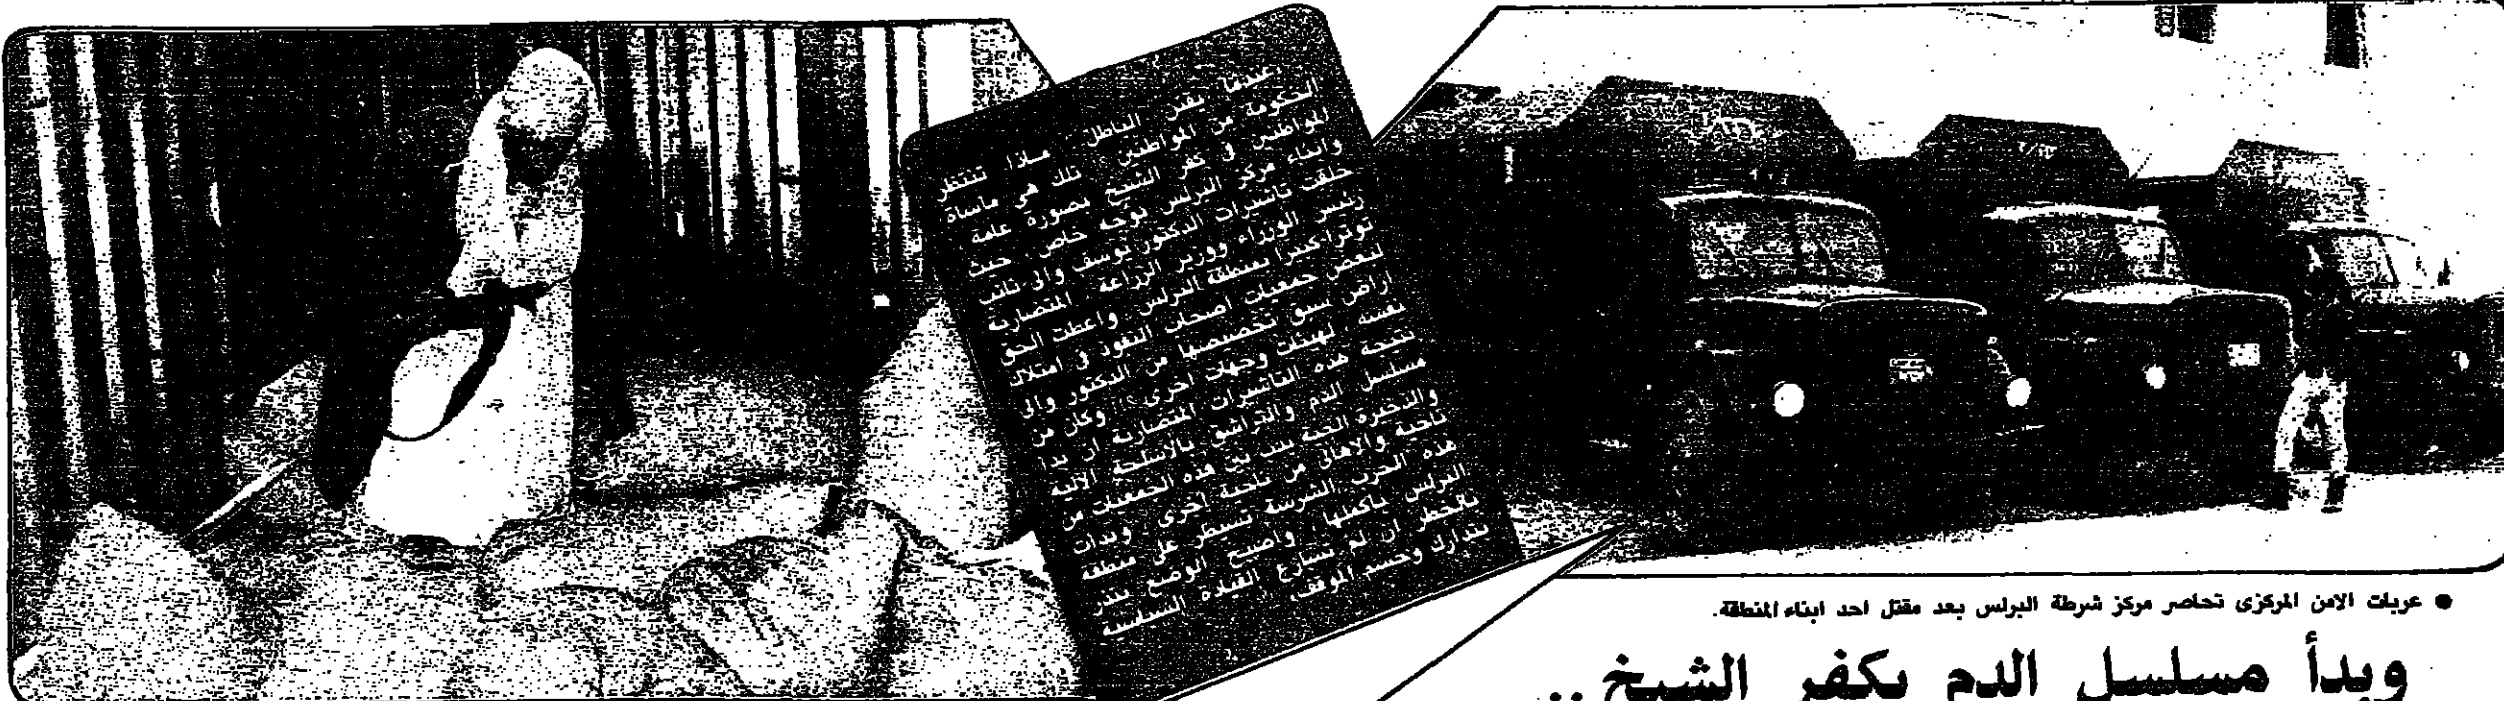 ماذا تنتظر
تلك هى ماساة
المواطنين فى كفر الشيخ بصورة عامة
وابناء مركز البرلس بوجه خاص حيث
تاشيرات الدكتور يوسف والى نائب
رئيس الوزراء ووزير الزراعة المتضاربة
لمنطقة البرلس واعطت الحق
لبعض جمعيات اصحاب النفوذ فى امتلاك
اراض سبق تخصيصها من الدكتور والى
نفسه لهيئات وجهات اخرى وكان من
نتيجة هذه التاشيرات المتضاربة ان بدا
مسلسل الدم
والذخيرة الحية بين هذه الجمعيات من
ناحية والاهالى من ناحية اخرى وبدات
هذه الحرب الشرسة تسيطر على منطقة
البرلس باكملها واصبح الوضع ينذر
ان لم تسارع القيادة السياسية
تدارك وحسم الموقف
● عربات الامن المركزى تحاصر مركز شرطة البرلس بعد مقتل احد ابناء المنطقة.
وبدأ مسلسل الدم بكفر الشيخ ..